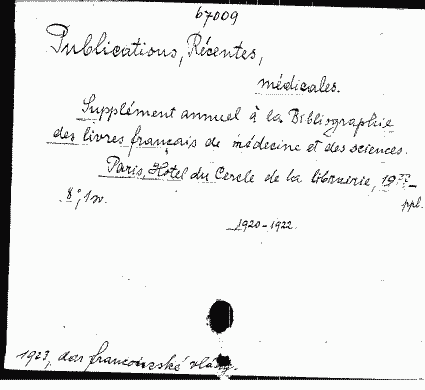 67009
Publications, Récentes,
médicales.
Supplément annuel à la Bibliographie
des livres français de médecine et des sciences.
Paris, Hôtel du Cercle de la librairie, 19??-
ppl.
8°, 1 v.
1920-1922.
1923, dar francouzské vlády.